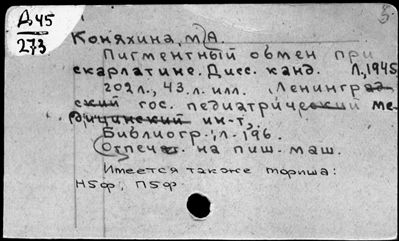 Д45
273
Коняхина, М.А.
Пигментный обмен при
скарлатине. Дисс. канд. Л., 1945
202 л., 43 л. илл. Ленинград-
ский гос. педиатрический ме-
дицинский ин-т,
Библиогр.: л. 196.
Отпечат. на пиш. маш.
Имеется также шифр:
Н5ф; П5ф.